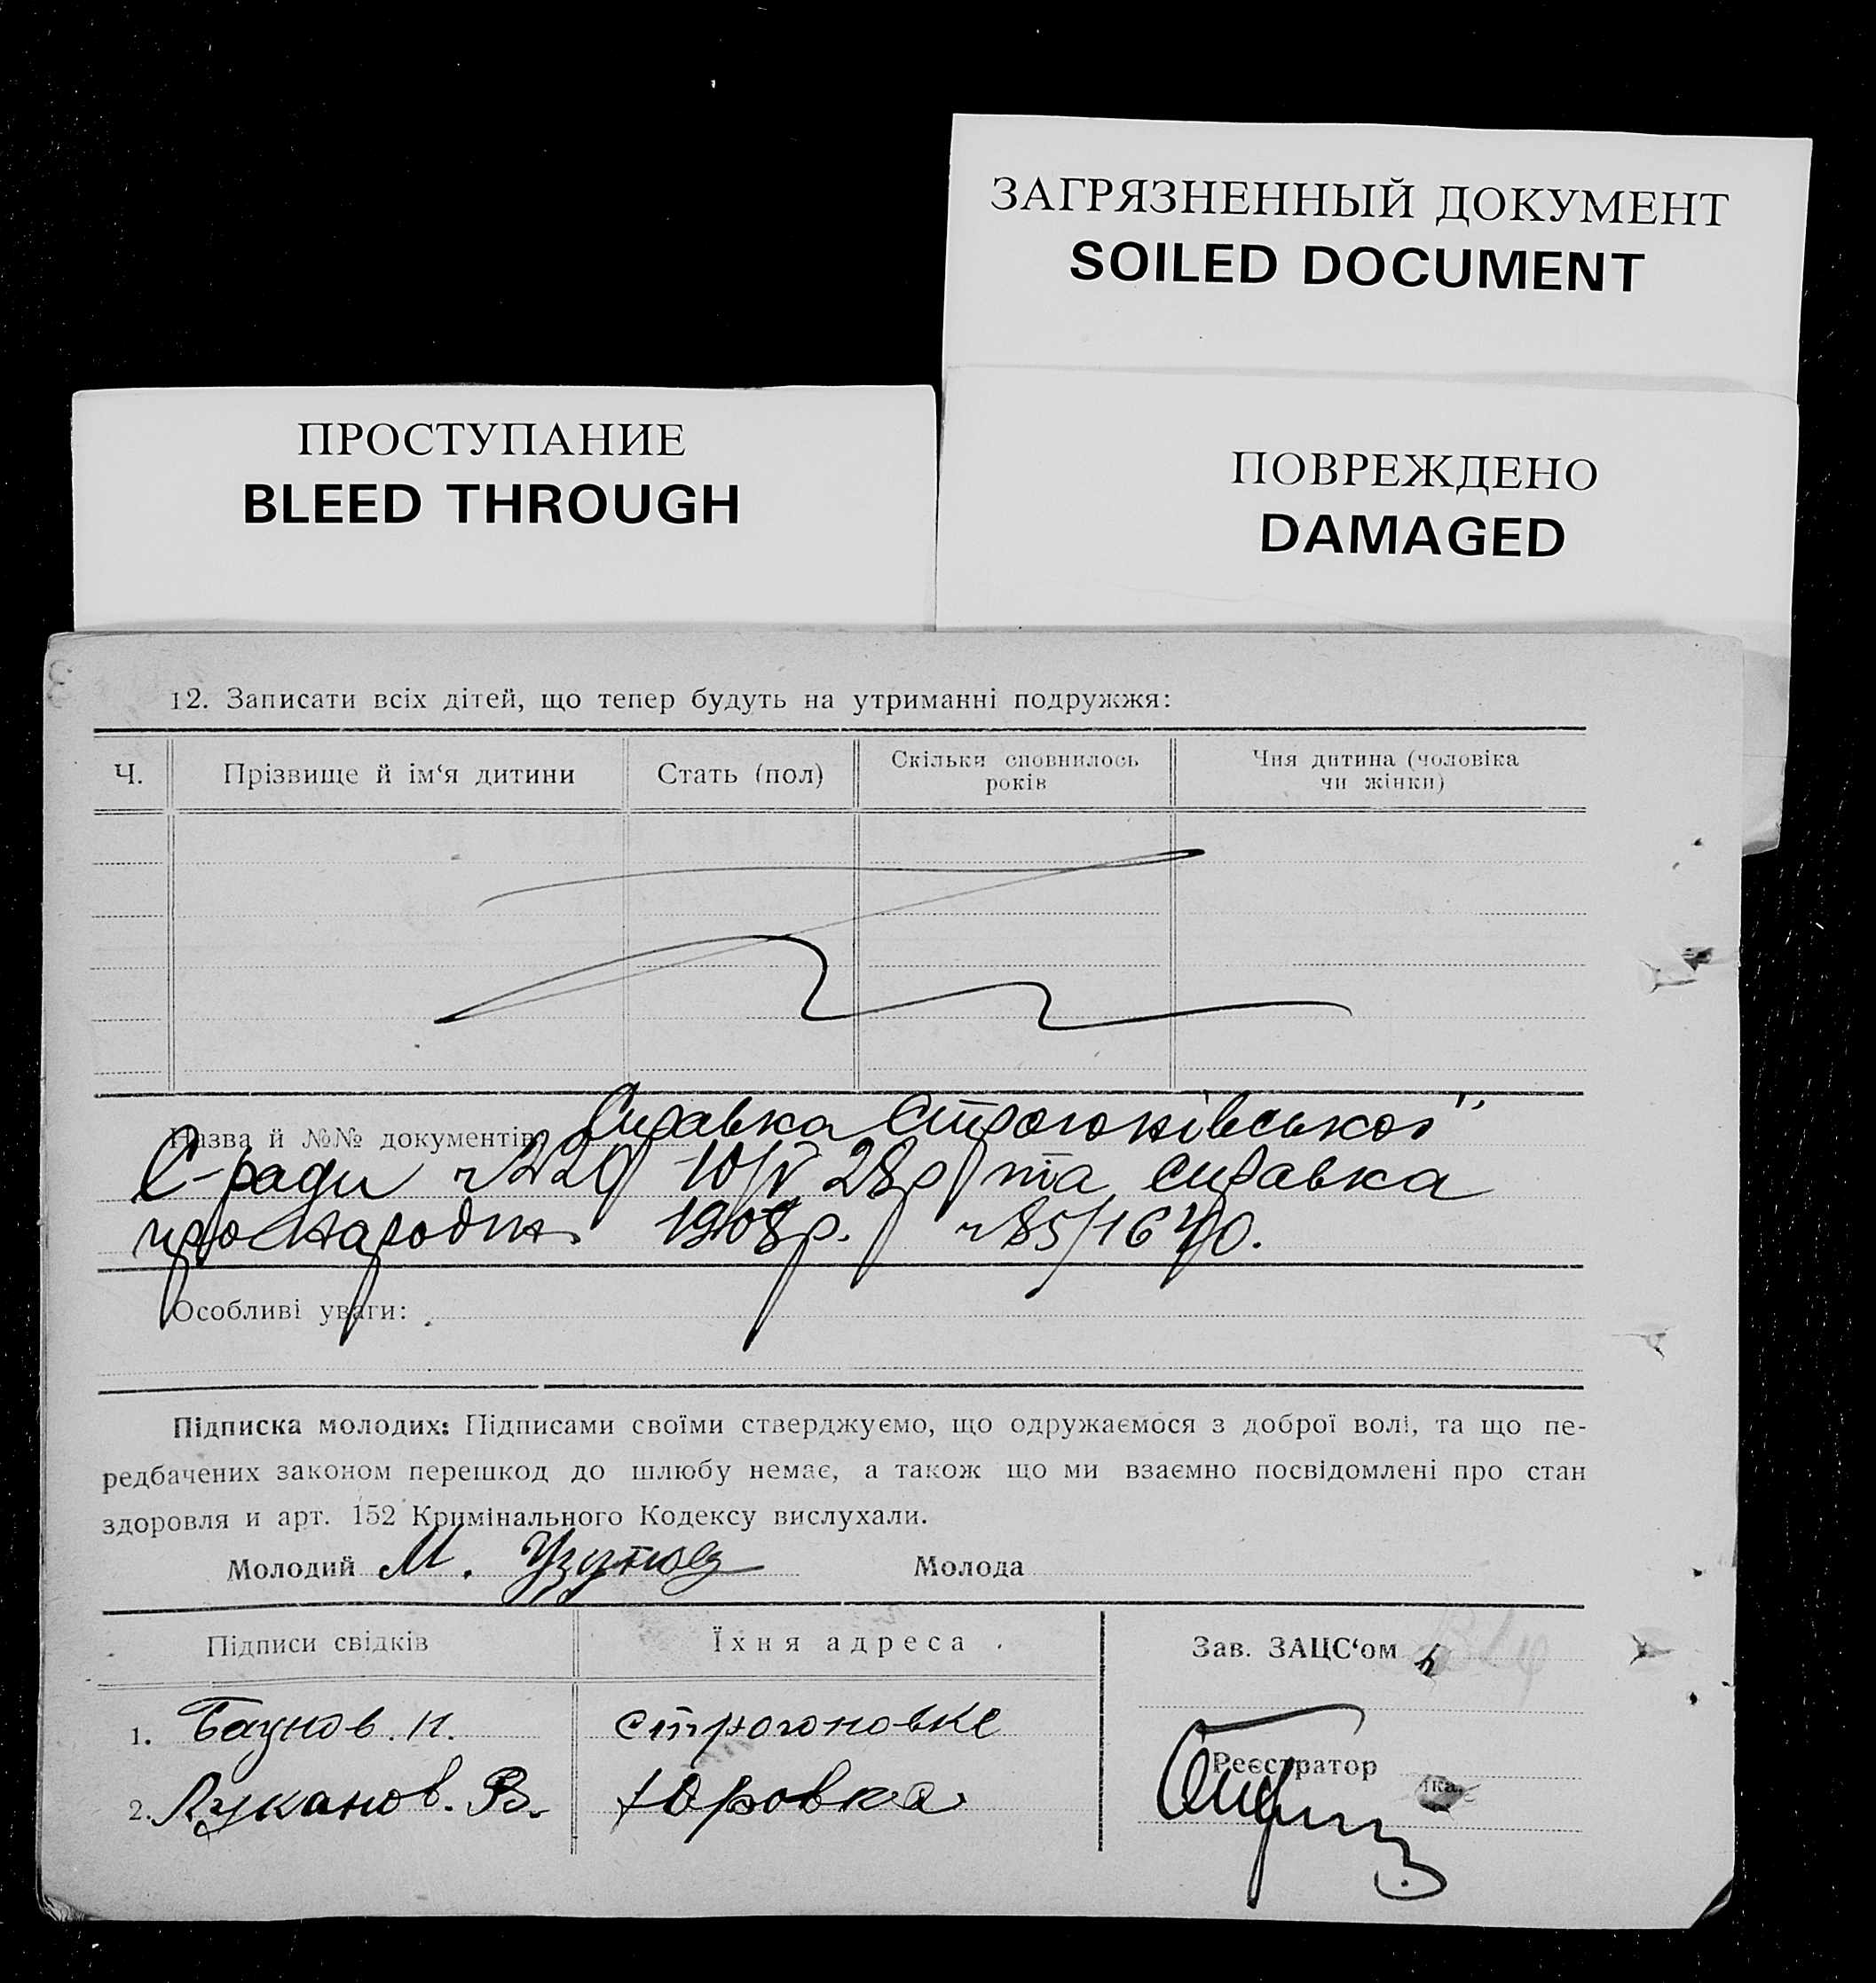 ЗАГРЯЗНЕННЫЙ ДОКУМЕНТ
SOILED DOCUMENT
ПРОСТУПАНИЕ
BLEED THROUGH
ПОВРЕЖДЕНО
DAMAGED
12. Записати всіх дітей, що тепер будуть на утриманні подружжя:
Ч. Прізвище й ім‘я дитини Стать (пол) Скільки сповнилось років Чия дитина (чоловіка чи жінки)
Назва й №№ документів: Справка Строгонівської
С-ради 10/V 28р та справка
про 1908р. 85/1640.
Особливі уваги:
Підписка молодих: Підписами своїми стверджуємо, що одружаємося з доброї волі, та що пе-
редбачених законом перешкод до шлюбу немає, а також що ми взаємно посвідомлені про стан
здоровля и арт. 152 Кримінального Кодексу вислухали.
Молодий М. Молода
Підписи свідків Їхня адреса Зав. ЗАЦС‘ом
1. Баунов. И. Строгоновке
Реєстратор
2. Луканов. В. Юровка